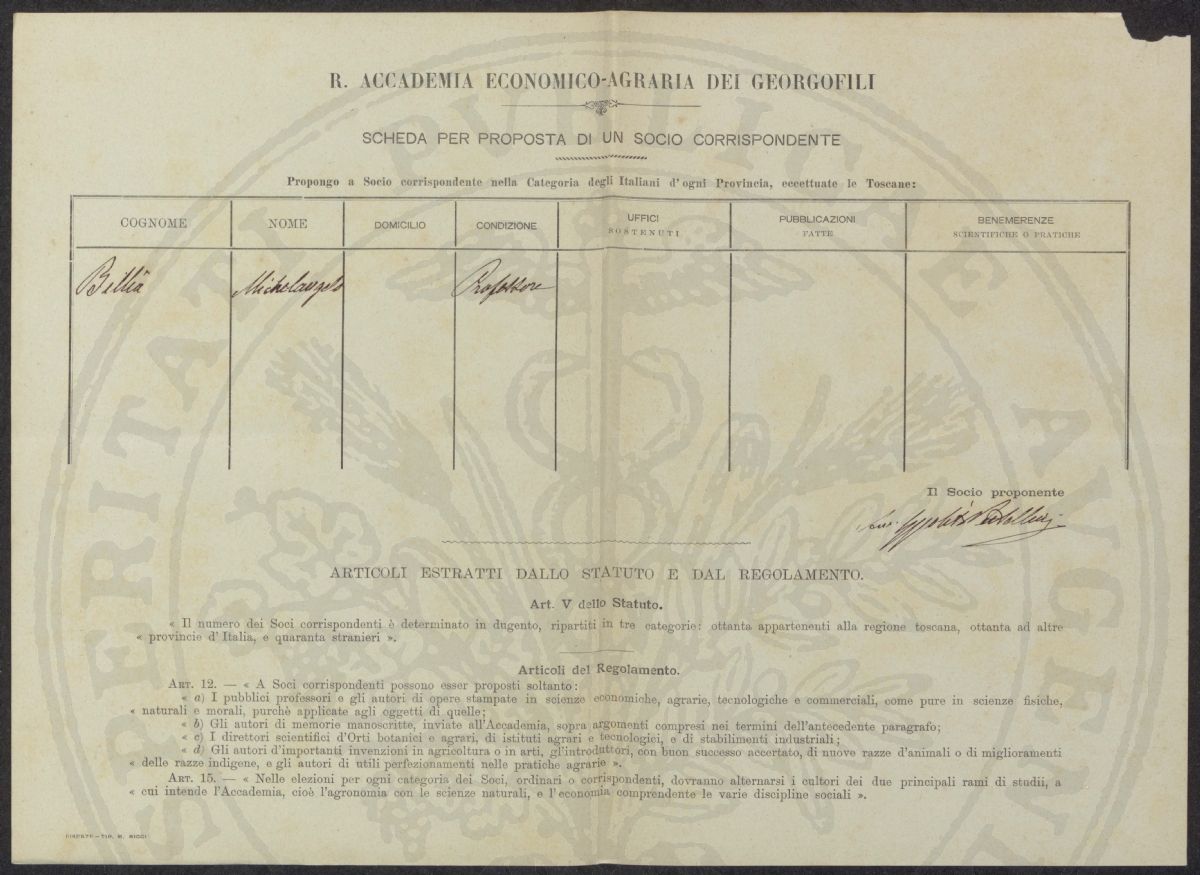 R. ACCADEMIA ECONOMICO-AGRARIA DEI GEORGOFILI
SCHEDA PER PROPOSTA DI UN SOCIO CORRISPONDENTE
Propongo a Socio corrispondente nella Categoria degli Italiani d'ogni Provincia, eccettuate le Toscane:
COGNOME NOME DOMICILIO CONDIZIONE UFFICI SOSTENUTI PUBBLICAZIONI FATTE BENEMERENZE SCIENTIFICHE O PRATICHE
Billia Michelangelo Professore
Il Socio proponente
ARTICOLI ESTRATTI DALLO STATUTO E DAL REGOLAMENTO.
Art. V dello Statuto.
« Il numero dei Soci corrispondenti è determinato in dugento, ripartiti in tre categorie: ottanta appartenenti alla regione toscana, ottanta ad altre
« provincie d'Italia, e quaranta stranieri ».
Articoli del Regolamento.
ART. 12. — « A Soci corrispondenti possono esser proposti soltanto:
« a) I pubblici professori e gli autori di opere stampate in scienze economiche, agrarie, tecnologiche e commerciali, come pure in scienze fisiche,
« naturali e morali, purchè applicate agli oggetti di quelle;
« b) Gli autori di memorie manoscritte, inviate all'Accademia, sopra argomenti compresi nei termini dell'antecedente paragrafo;
« c) I direttori scientifici d'Orti botanici e agrari, di istituti agrari e tecnologici, e di stabilimenti industriali;
« d) Gli autori d'importanti invenzioni in agricoltura o in arti, gl'introduttori, con buon successo accertato, di nuove razze d'animali o di miglioramenti
« delle razze indigene, e gli autori di utili perfezionamenti nelle pratiche agrarie ».
ART. 15. — « Nelle elezioni per ogni categoria dei Soci, ordinari o corrispondenti, dovranno alternarsi i cultori dei due principali rami di studii, a
« cui intende l'Accademia, cioè l'agronomia con le scienze naturali, e l'economia comprendente le varie discipline sociali ».
FIRENZE – TIP. M. RICCI